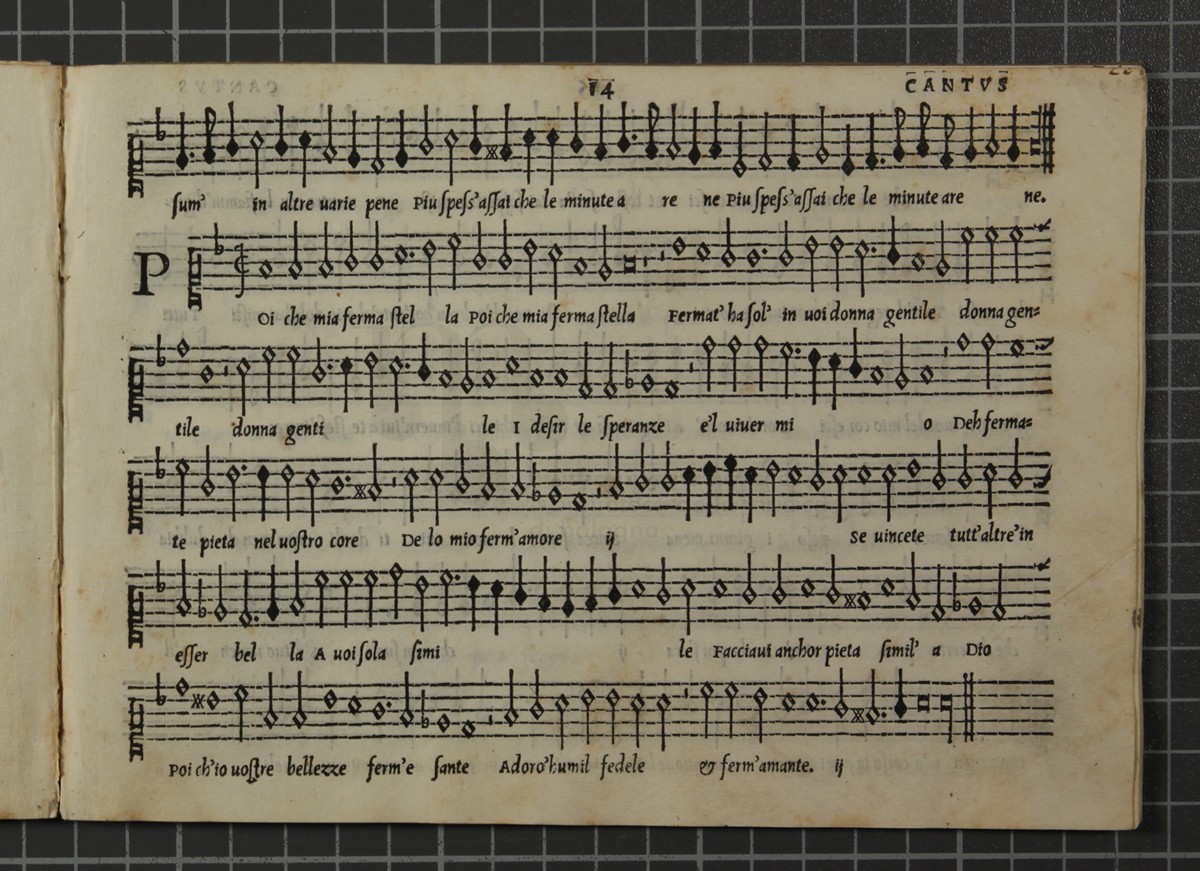 14 CANTVS
sum' in altre uarie pene Piu spess'assai che le minute a re ne Piu spess'assai che le minute are ne.
P
Oi che mia ferma stel la Poi che mia ferma stella Fermat' ha sol' in uoi donna gentile donna gen=
tile donna genti le I desir le speranze e'l uiuer mi o Deh ferma=
te pieta nel uostro core De lo mio ferm'amore ij Se uincete tutt'altre'in
esser bel la A uoi sola simi le Facciaui anchor pieta simil' a Dio
Poi ch'io uostre bellezze ferm'e sante Adoro'humil fedele & ferm'amante. ij